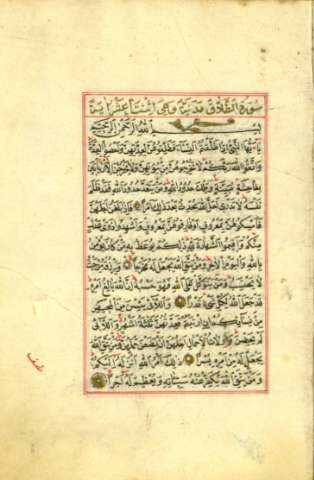 سُورَةُ الطَّلَاقِ مَدَنِيَّةٌ وَهِيَ اثْنَتَا عَشَرَ اٰيَةً
بِسْمِ اللّٰهِ الرَّحْمٰنِ الرَّحِيمِ
يَا اَيُّهَا النَّبِيُّ اِذَا طَلَّقْتُمُ النِّسَاءَ فَطَلِّقُوهُنَّ لِعِدَّتِهِنَّ وَاَحْصُوا الْعِدَّةَ
وَاتَّقُوا اللّٰهَ رَبَّكُمْ لَا تُخْرِجُوهُنَّ مِنْ بُيُوتِهِنَّ وَلَا يَخْرُجْنَ اِلَّا اَنْ يَأْتِينَ
بِفَاحِشَةٍ مُبَيِّنَةٍ وَتِلْكَ حُدُودُ اللّٰهِ وَمَنْ يَتَعَدَّ حُدُودَ اللّٰهِ فَقَدْ ظَلَمَ
نَفْسَهُ لَا تَدْرِي لَعَلَّ اللّٰهَ يُحْدِثُ بَعْدَ ذٰلِكَ اَمْرًا فَاِذَا بَلَغْنَ اَجَلَهُنَّ
فَاَمْسِكُوهُنَّ بِمَعْرُوفٍ اَوْ فَارِقُوهُنَّ بِمَعْرُوفٍ وَاَشْهِدُوا ذَوَيْ عَدْلٍ
مِنْكُمْ وَاَقِيمُوا الشَّهَادَةَ لِلّٰهِ ذٰلِكُمْ يُوعَظُ بِهِ مَنْ كَانَ يُؤْمِنُ
بِاللّٰهِ وَالْيَوْمِ الْاٰخِرِ وَمَنْ يَتَّقِ اللّٰهَ يَجْعَلْ لَهُ مَخْرَجًا وَيَرْزُقْهُ مِنْ حَيْثُ
لَا يَحْتَسِبُ وَمَنْ يَتَوَكَّلْ عَلَى اللّٰهِ فَهُوَ حَسْبُهُ اِنَّ اللّٰهَ بَالِغُ اَمْرِهِ
قَدْ جَعَلَ اللّٰهُ لِكُلِّ شَيْءٍ قَدْرًا وَاللَّائِي يَئِسْنَ مِنَ الْمَحِيضِ
مِنْ نِسَائِكُمْ اِنِ ارْتَبْتُمْ فَعِدَّتُهُنَّ ثَلٰثَةُ اَشْهُرٍ وَاللَّائِي
لَمْ يَحِضْنَ وَاُولَاتُ الْاَحْمَالِ اَجَلُهُنَّ اَنْ يَضَعْنَ حَمْلَهُنَّ وَمَنْ يَتَّقِ اللّٰهَ
يَجْعَلْ لَهُ مِنْ اَمْرِهِ يُسْرًا ذٰلِكَ اَمْرُ اللّٰهِ اَنْزَلَهُ اِلَيْكُمْ
وَمَنْ يَتَّقِ اللّٰهَ يُكَفِّرْ عَنْهُ سَيِّئَاتِهِ وَيُعْظِمْ لَهُ اَجْرًا